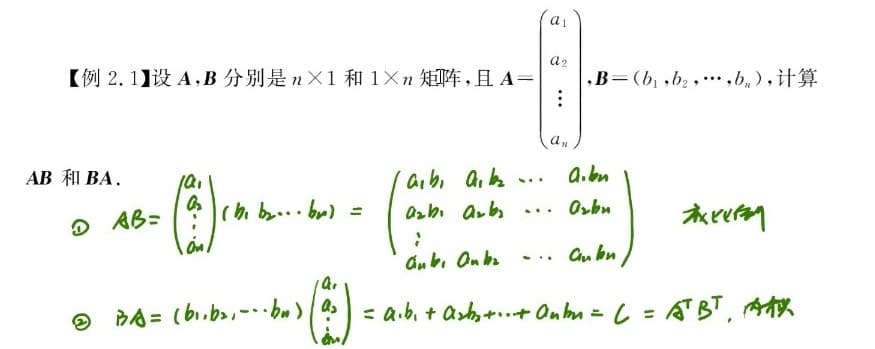 【例 2.1】设 A,B 分别是 n×1 和 1×n 矩阵,且 A=(a₁ a₂ ⋮ aₙ),B=(b₁,b₂,⋯,bₙ),计算
AB 和 BA.
① AB=(a₁ a₂ ⋮ aₙ)(b₁ b₂⋯bₙ) = (a₁b₁ a₁b₂ ⋯ a₁bₙ
a₂b₁ a₂b₂ ⋯ a₂bₙ
⋮
aₙb₁ aₙb₂ ⋯ aₙbₙ)
② BA=(b₁,b₂,⋯bₙ)(a₁ a₂ ⋮ aₙ) = a₁b₁+a₂b₂+⋯+aₙbₙ = C = AᵀBᵀ. 内积